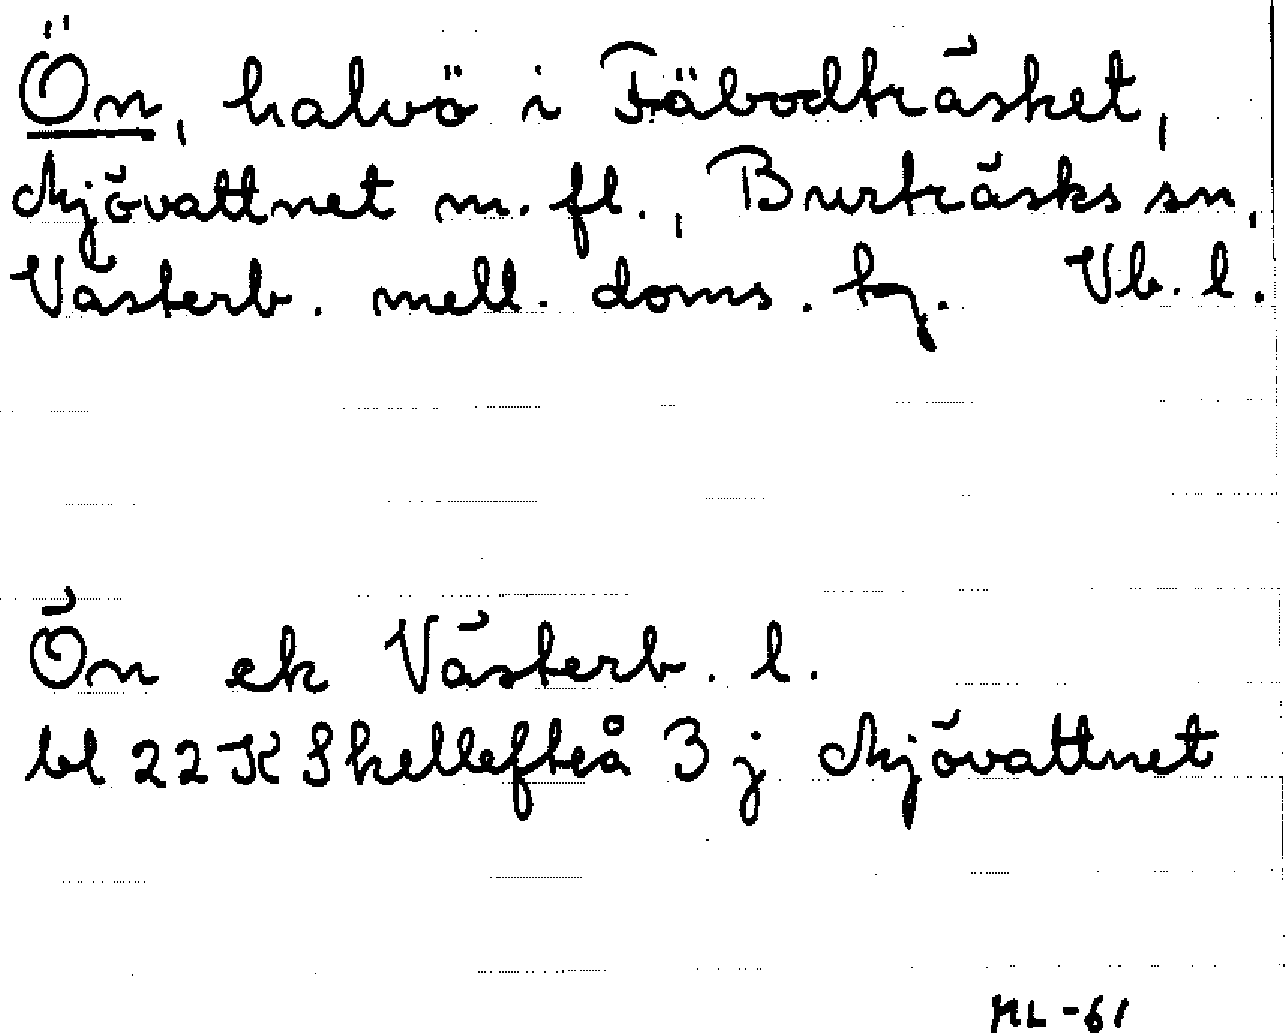 Ön, halvö i Fäbodträsket,
Mjövattnet m. fl., Burträsks sn,
Västerb. mell. doms. hj. Vb. l.
Ön ek Västerb. l.
bl 22 K Skellefteå 3 j Mjövattnet
ML -61